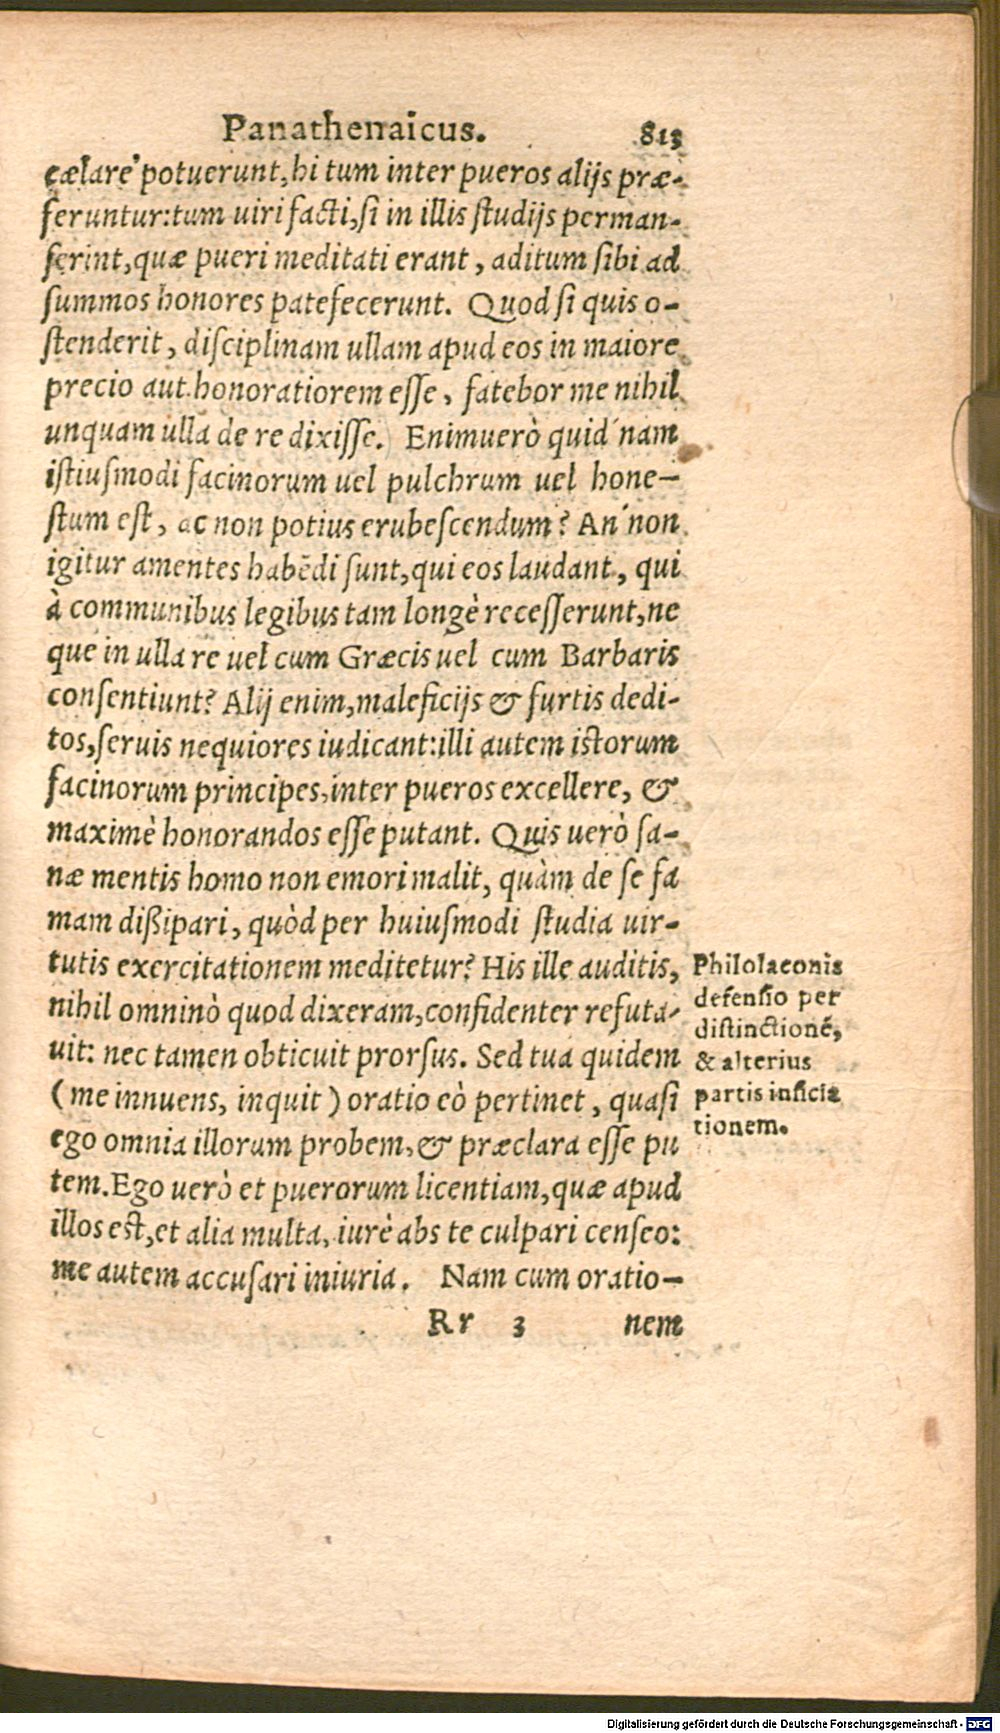 Panathenaicus. 813
cælare potuerunt, hi tum inter pueros alijs præ-
feruntur: tum uiri facti, si in illis studijs perman-
serint, quæ pueri meditati erant, aditum sibi ad
summos honores patefecerunt. Quod si quis o-
stenderit, disciplinam ullam apud eos in maiore
precio aut honoratiorem esse, fatebor me nihil
unquam ulla de re dixisse. Enimuerò quid´nam
istiusmodi facinorum uel pulchrum uel hone-
stum est, ac non potius erubescendum? An´non
igitur amentes habēdi sunt, qui eos laudant, qui
à communibus legibus tam longè recesserunt, ne
que in ulla re uel cum Græcis uel cum Barbaris
consentiunt? Alij enim, maleficijs & furtis dedi-
tos, seruis nequiores iudicant: illi autem istorum
facinorum principes, inter pueros excellere, &
maximè honorandos esse putant. Quis uerò sa-
næ mentis homo non emori malit, quàm de se fa
mam dißipari, quòd per huiusmodi studia uir-
tutis exercitationem meditetur? His ille auditis,
nihil omninò quod dixeram, confidenter refuta-
uit: nec tamen obticuit prorsus. Sed tua quidem
(me innuens, inquit) oratio eò pertinet, quasi
ego omnia illorum probem, & præclara esse pu
tem. Ego uerò et puerorum licentiam, quæ apud
illos est, et alia multa, iurè abs te culpari censeo:
me autem accusari iniuria. Nam cum oratio-
Rr 3 nem
Philolaconis
defensio per
distinctionē,
& alterius
partis inficia
tionem.
Digitalisierung gefördert durch die Deutsche Forschungsgemeinschaft - DFG